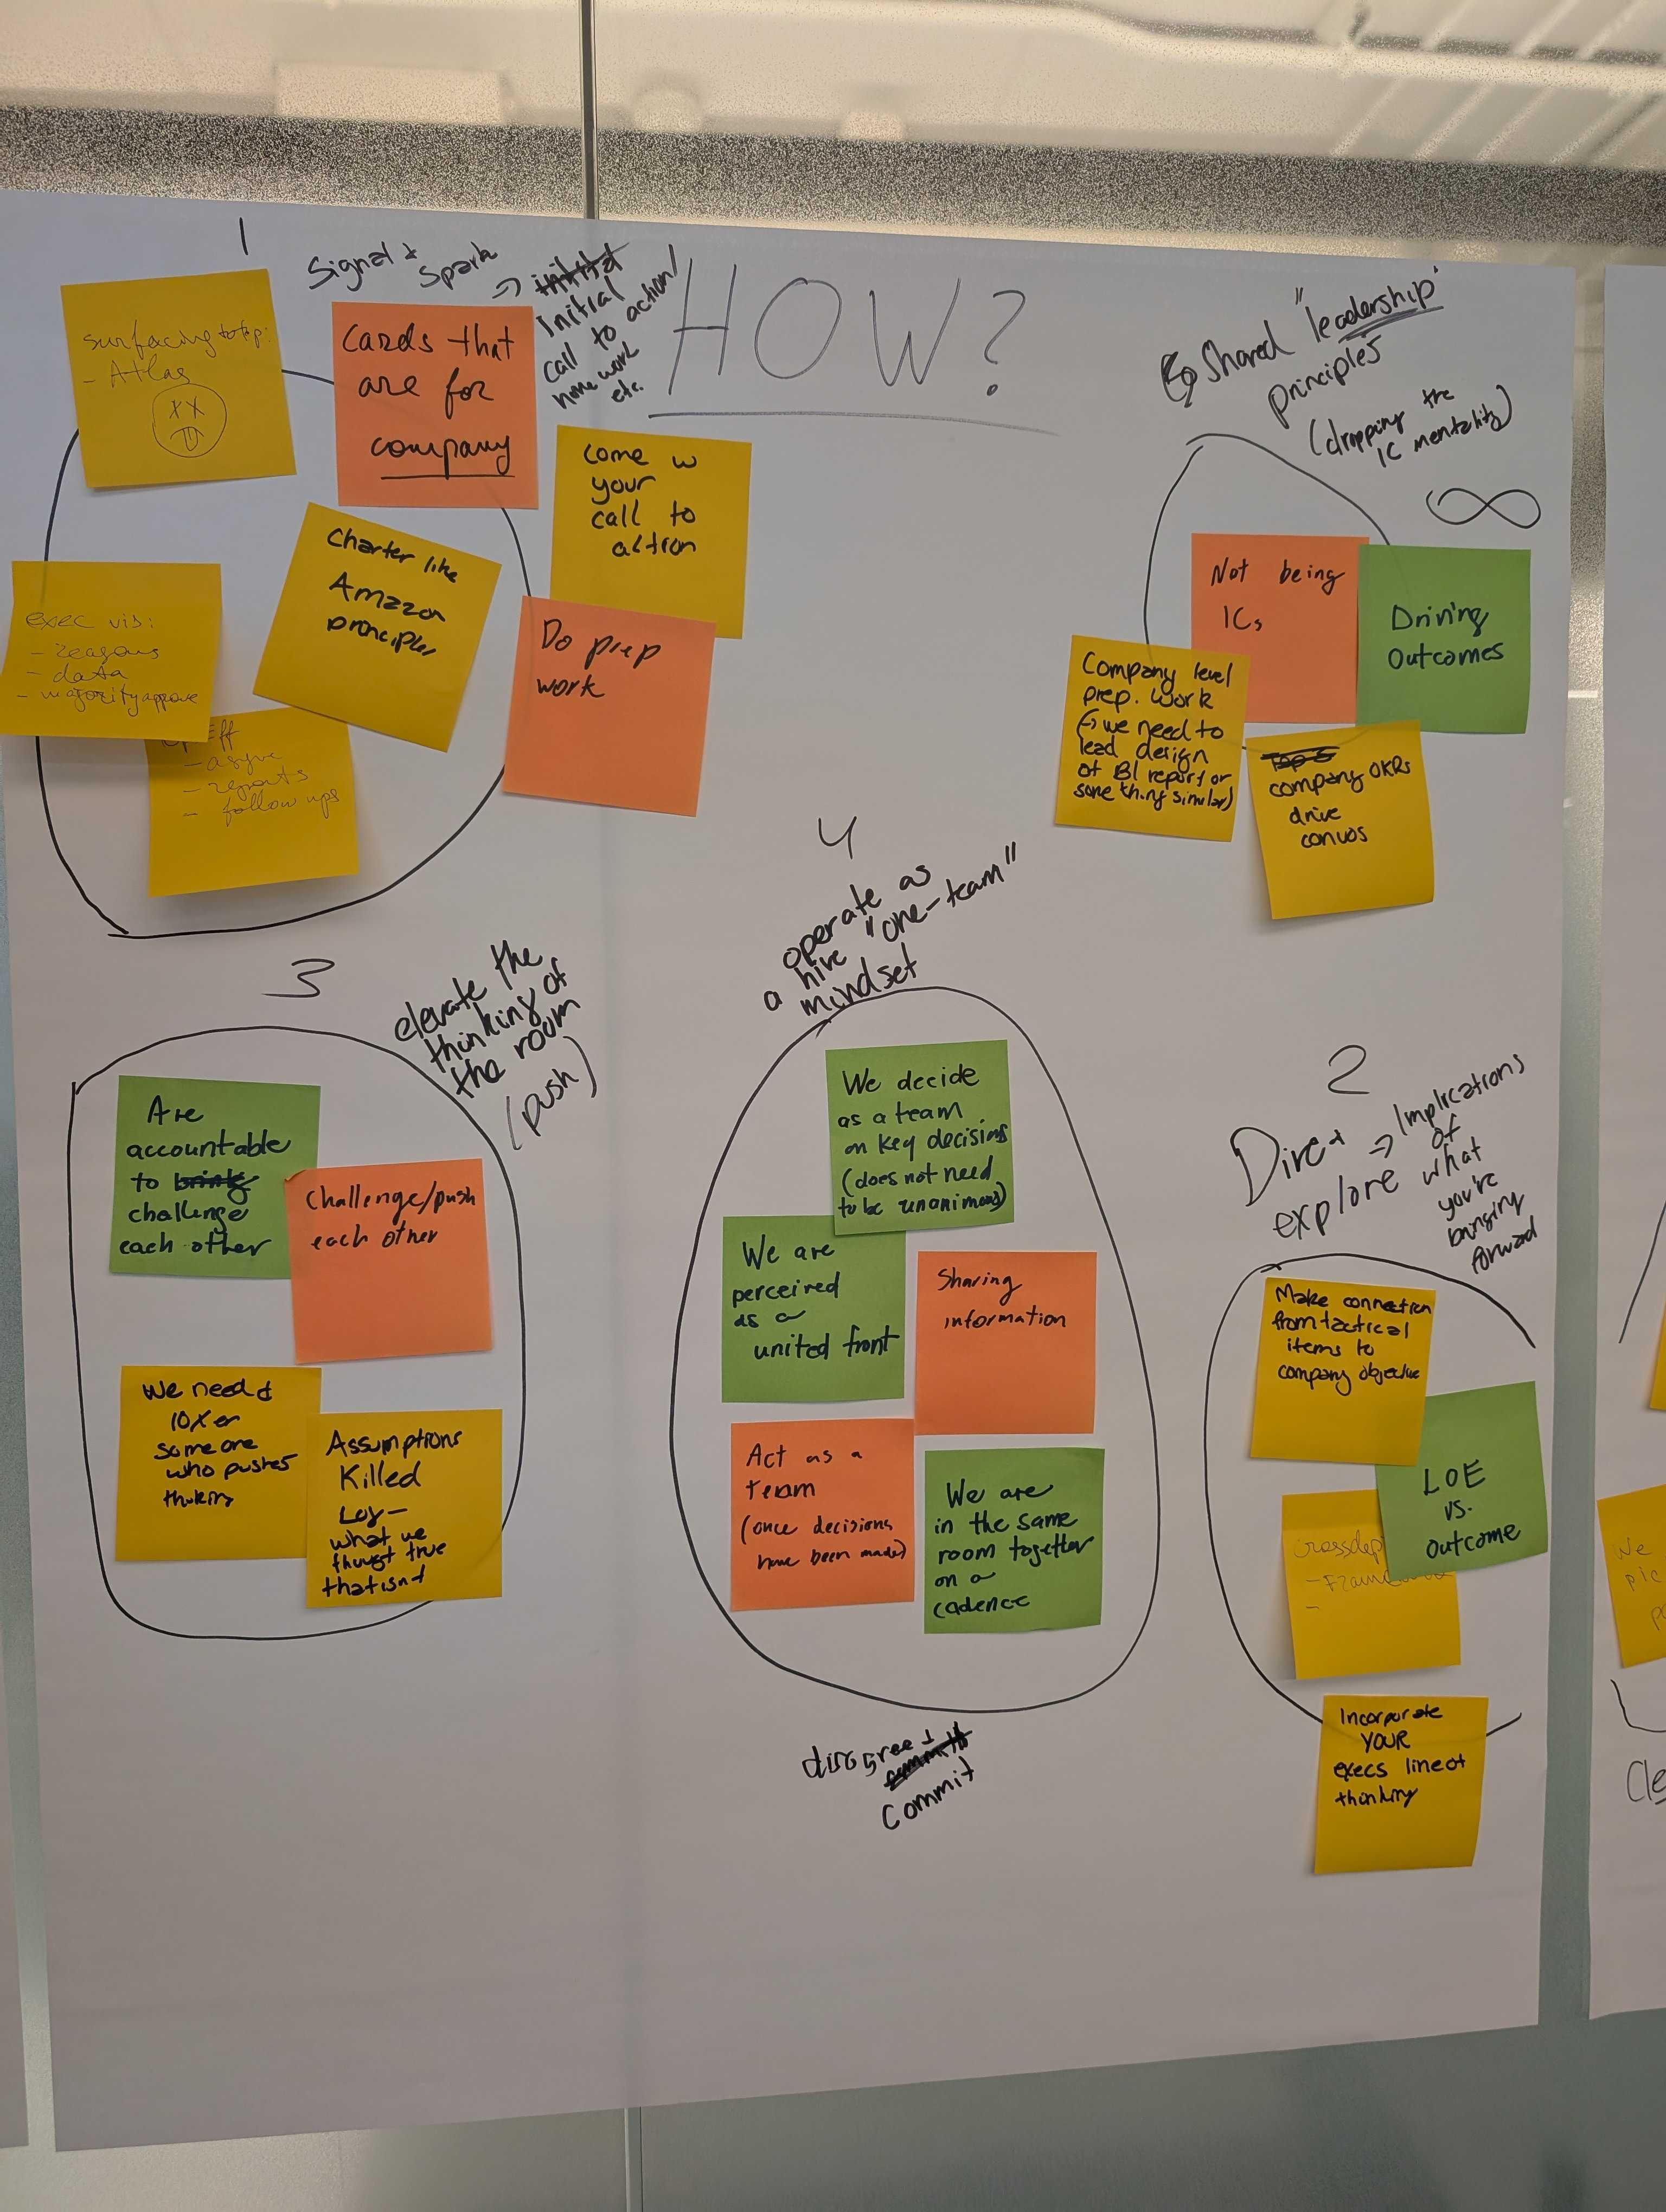 HOW?
1
Signal +
Spark
→
Initial
call to action/
home work
etc.
surfacing to top:
- Atlas
Cards that
are for
company
come w
your
call to
action
Charter like
Amazon
principles
Do prep
work
exec vis:
- reasons
- data
- majority approve
Eff
- async
- reports
- follow ups
Shared "leadership"
principles
(dropping the
IC mentality)
∞
Not being
ICs
Driving
Outcomes
Company level
prep. work
(→ we need to
lead design
of BI report or
something similar)
Top 5
company OKRs
drive
convos
3
elevate the
thinking of
the room
(push)
Are
accountable
to bring
challenge
each other
Challenge/push
each other
We need a
10X er
someone
who pushes
thinking
Assumptions
Killed
Log –
what we
thougt true
that isnt
4
operate as
a hive "one-team"
mindset
We decide
as a team
on key decisions
(does not need
to be unanimous)
We are
perceived
as a
united front
Sharing
information
Act as a
team
(once decisions
have been made)
We are
in the same
room together
on a
cadence
disagree +
commit
2
Direct
explore
→ Implications
of
what
you're
bringing
forward
Make connection
from tactical
items to
company objective
LOE
vs.
outcome
crossdep
-
Incorporate
YOUR
execs line of
thinking
We
pic
Cle